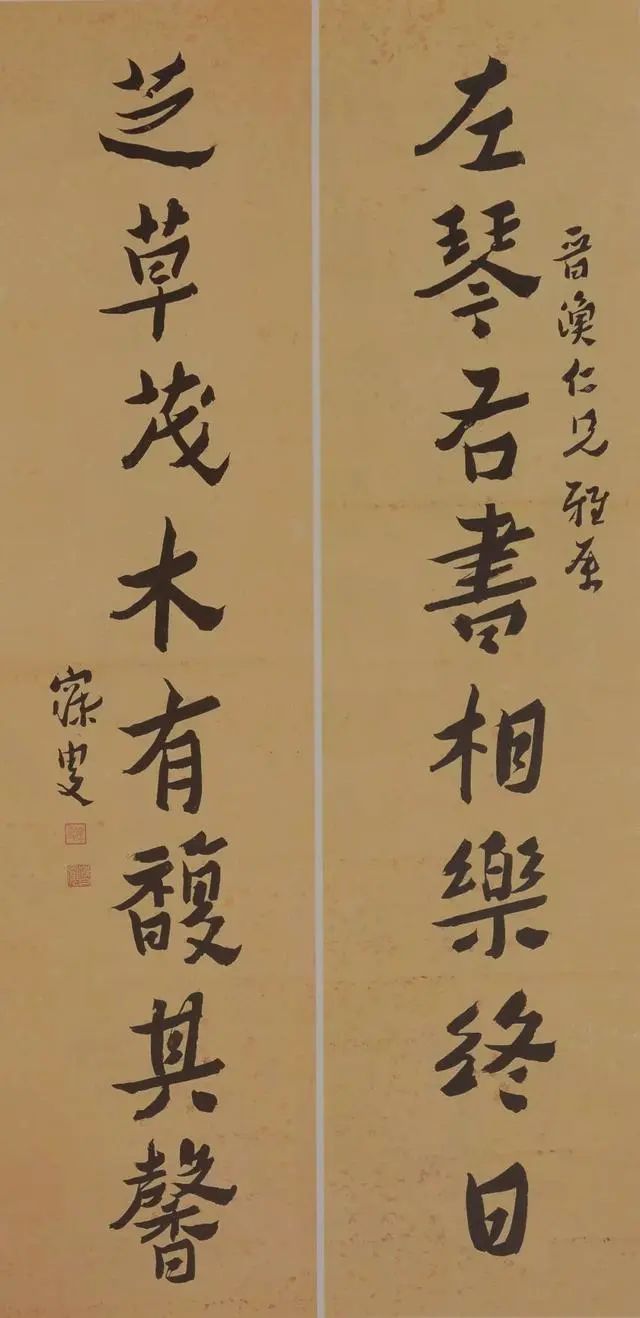 晋渙仁兄雅屬
左琴右書相樂終日
芝草茂木有馥其馨
寐叟